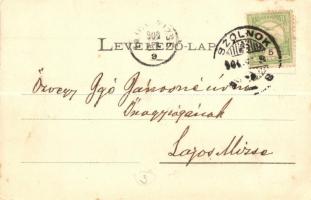 LEVELEZŐ-LAP
SZOLNOK
904
5
Özvegy Ggó Jánosné úrnő
Őnagyságának
Lajos Mizse